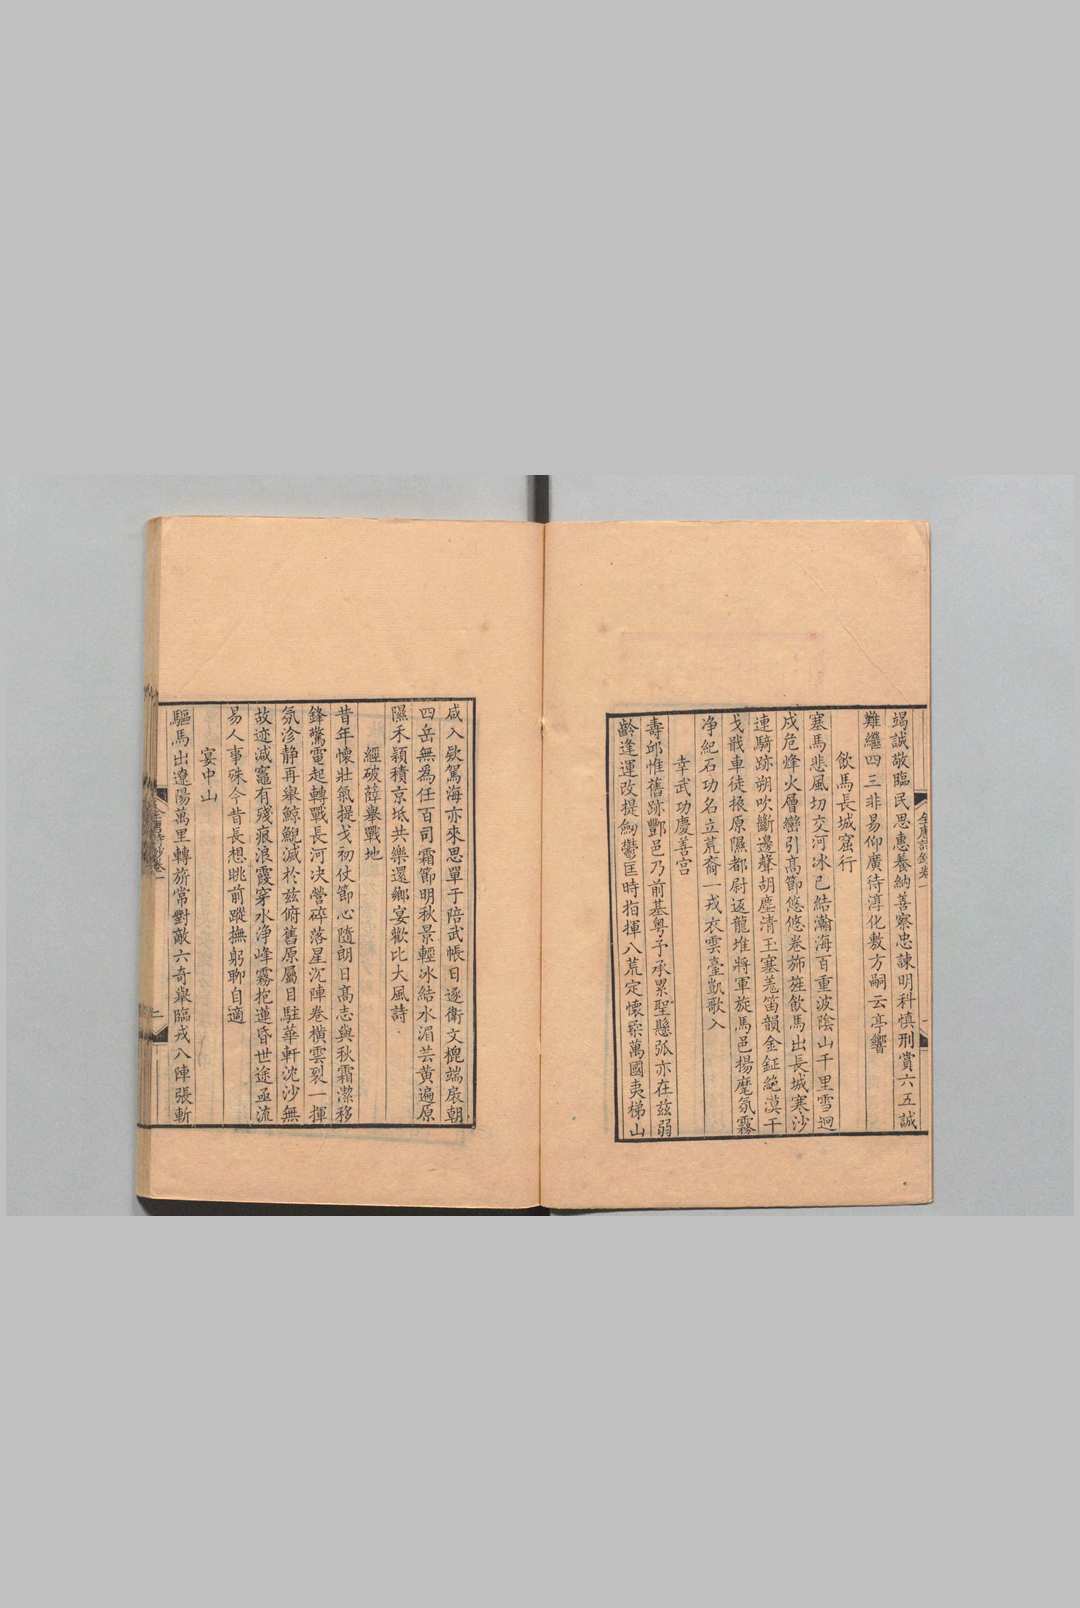 竭誠敬臨民思惠養納善察忠諫明科慎刑賞六五誠
難繼四三非易仰廣待淳化敷方嗣云亭響
飲馬長城窟行
塞馬悲風切交河冰已結瀚海百重波陰山千里雪迥
戍危烽火層巒引高節悠悠卷旆旌飲馬出長城寒沙
連騎跡朔吹斷邊聲胡塵清玉塞羗笛韻金鉦絶漠干
戈戢車徒振原隰都尉返龍堆將軍旋馬邑揚麾氛霧
净紀石功名立荒裔一戎衣雲臺凱歌入
幸武功慶善宫
壽邱惟舊跡酆邑乃前基粤予承累聖懸弧亦在兹弱
齡逢運改提劒鬱匡時指揮八荒定懷柔萬國夷梯山
咸入欵駕海亦來思單于陪武帳日逐衛文㮰端扆朝
四岳無為任百司霜節明秋景輕冰結水湄芸黄遍原
隰禾穎積京坻共樂還鄉宴歡比大風詩
經破薛舉戰地
昔年懷壯氣提戈初仗節心隨朗日高志與秋霜潔移
鋒驚電起轉戰長河决營碎落星沉陣卷横雲裂一揮
氛沴静再舉鯨鯢滅於兹俯舊原屬目駐華軒沈沙無
故迹減竈有殘痕浪霞穿水净峰霧抱蓮昏世途亟流
易人事殊今昔長想眺前蹤撫躬聊自適
宴中山
驅馬出遼陽萬里轉旂常對敵六奇舉臨戎八陣張斬